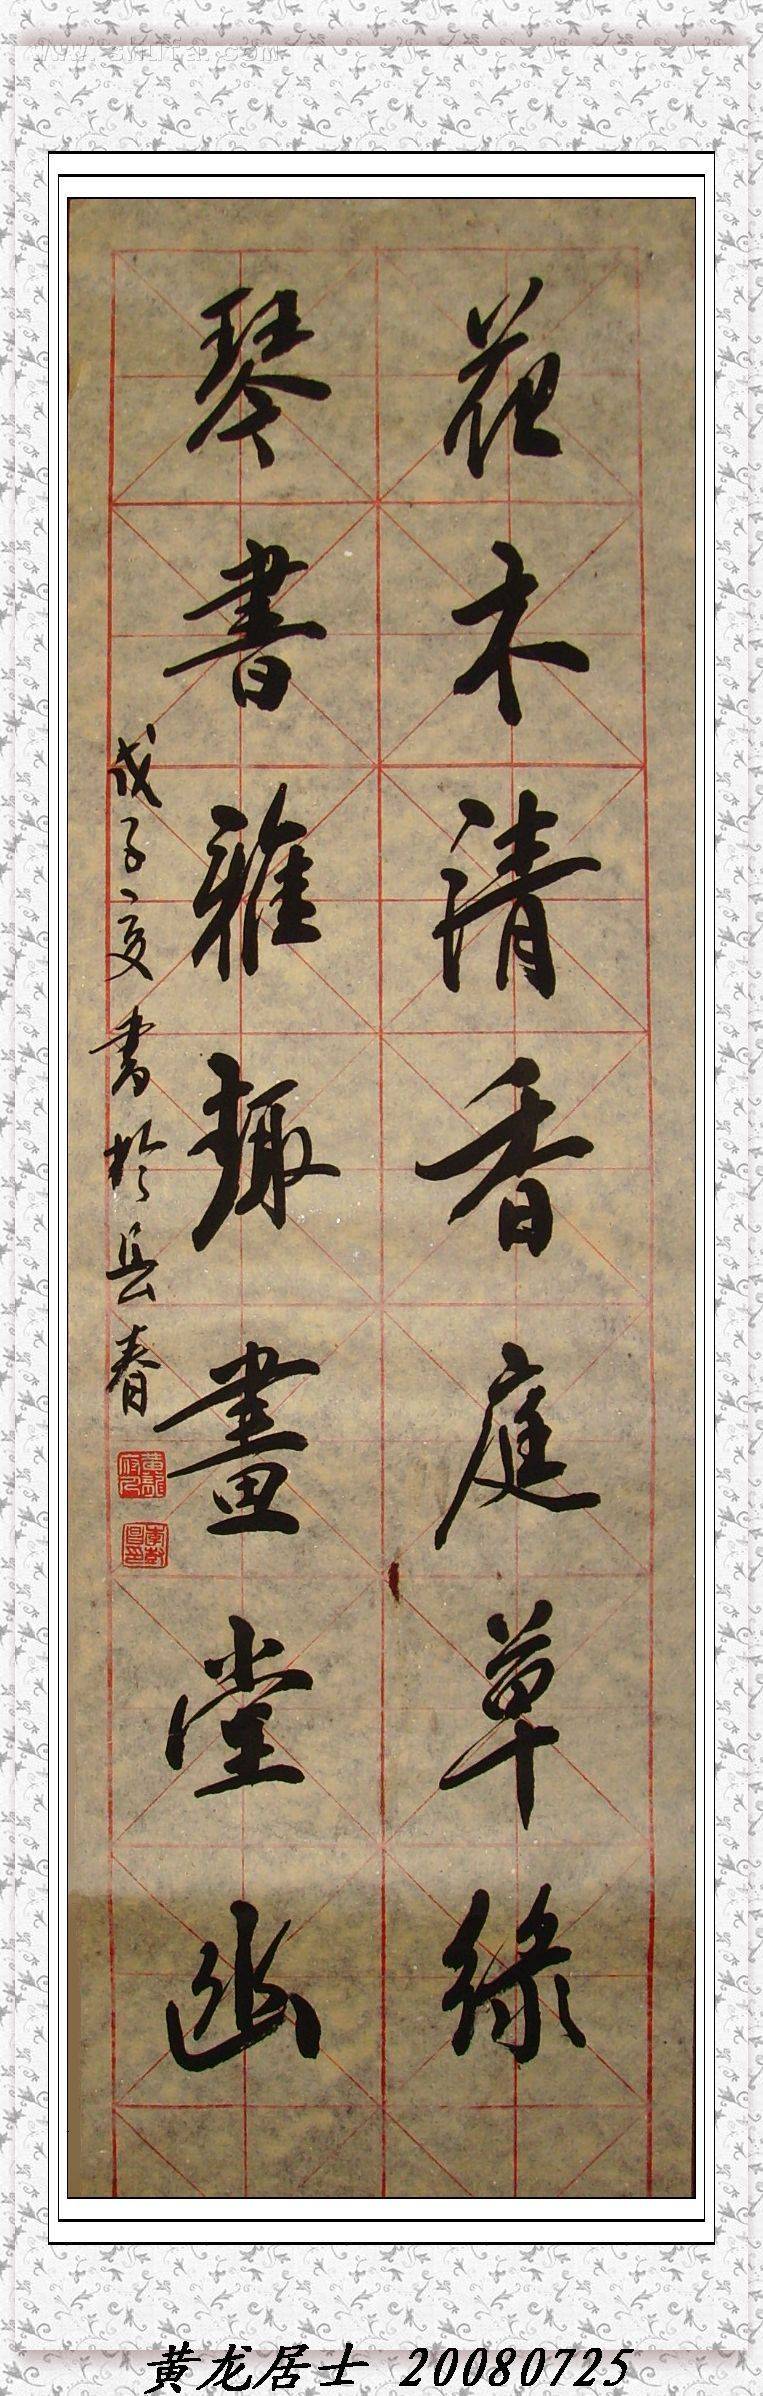 www.shufa.com
花木清香庭草绿
琴書雅趣畫堂幽
戊子夏書於長春
黄龙居士 20080725